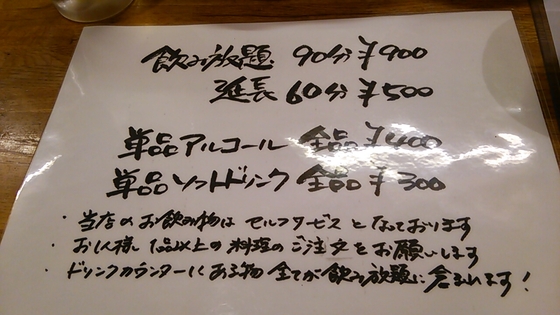 飲み放題 90分 ¥900
延長 60分 ¥500
単品アルコール 全品 ¥400
単品ソフトドリンク 全品 ¥300
・当店のお飲み物は セルフサービス となっております
・お1人様 1品以上の 料理の ご注文を お願いします
・ドリンクカウンターに ある物 全てが 飲み放題に 含まれます！